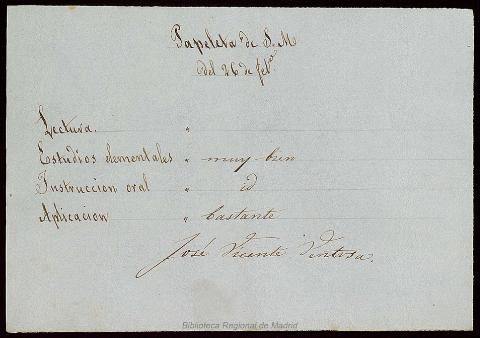 Papeleta de S. M
del 26 de febº
Lectura. "
Estudios elementales " muy bien
Instruccion oral " id
Aplicacion " bastante
José Vicente Ventosa.
Biblioteca Regional de Madrid